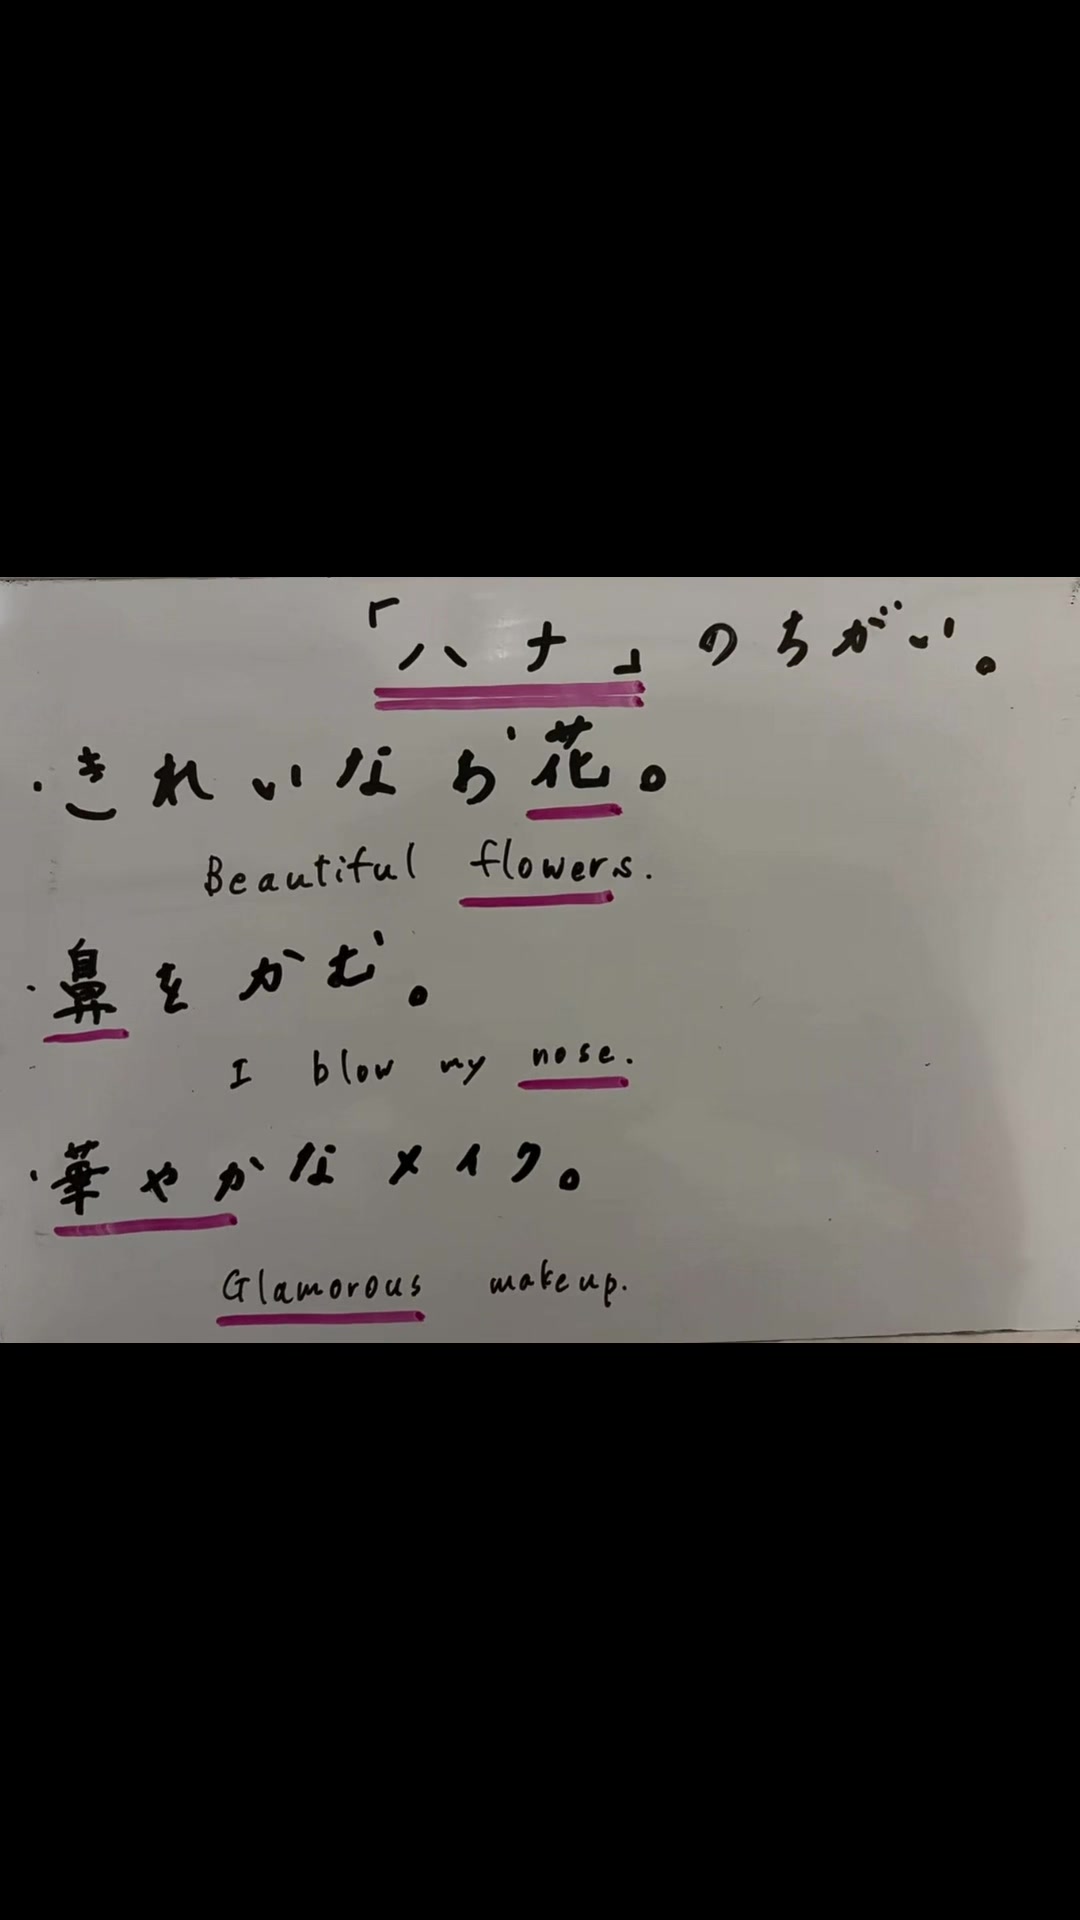 「ハナ」のちがい。
・きれいなお花。
Beautiful flowers.
・鼻をかむ。
I blow my nose.
・華やかなメイク。
Glamorous makeup.